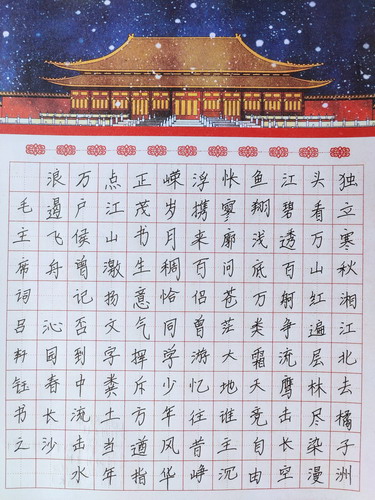 独立寒秋湘江北去橘子洲
头看万山红遍层林尽染漫
江碧透百舸争流鹰击长空
鱼翔浅底万类霜天竞自由
怅寥廓问苍茫大地谁主沉
浮携来百侣曾游忆往昔峥
嵘岁月稠恰同学少年风华
正茂书生意气挥斥方遒指
点江山激扬文字粪土当年
万户侯曾记否到中流击水
浪遏飞舟 沁园春长沙
毛主席词 吕轩钰书之